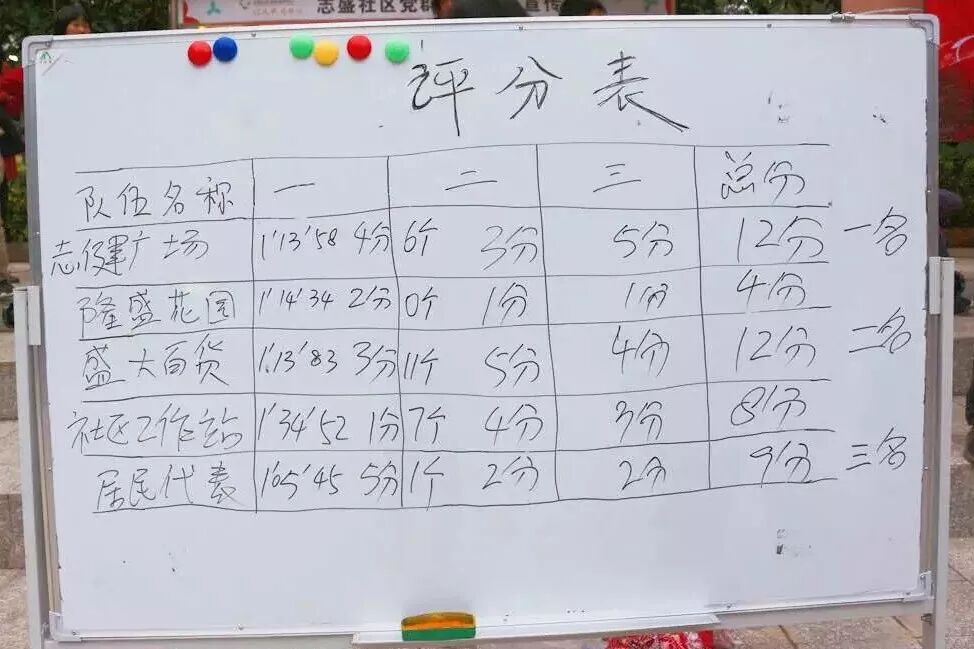 志盛社区党群
宣传
评分表
队伍名称 一 二 三 总分
志健广场 1'13'58 4分 6个 3分 5分 12分 一名
隆盛花园 1'14'34 2分 0个 1分 1分 4分
盛大百货 1'13'83 3分 11个 5分 4分 12分 二名
社区工作站 1'34'52 1分 7个 4分 3分 8分
居民代表 1'05'45 5分 1个 2分 2分 9分 三名